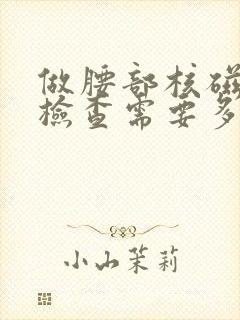 做腰部核磁
檢查需要多
小山茉莉